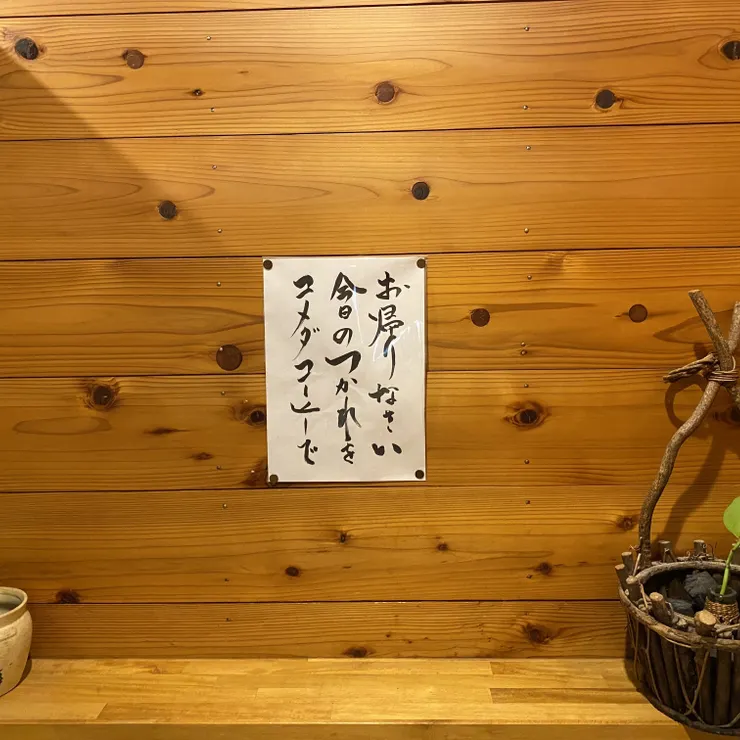 お帰りなさい
今日のつかれを
コメダコーヒーで